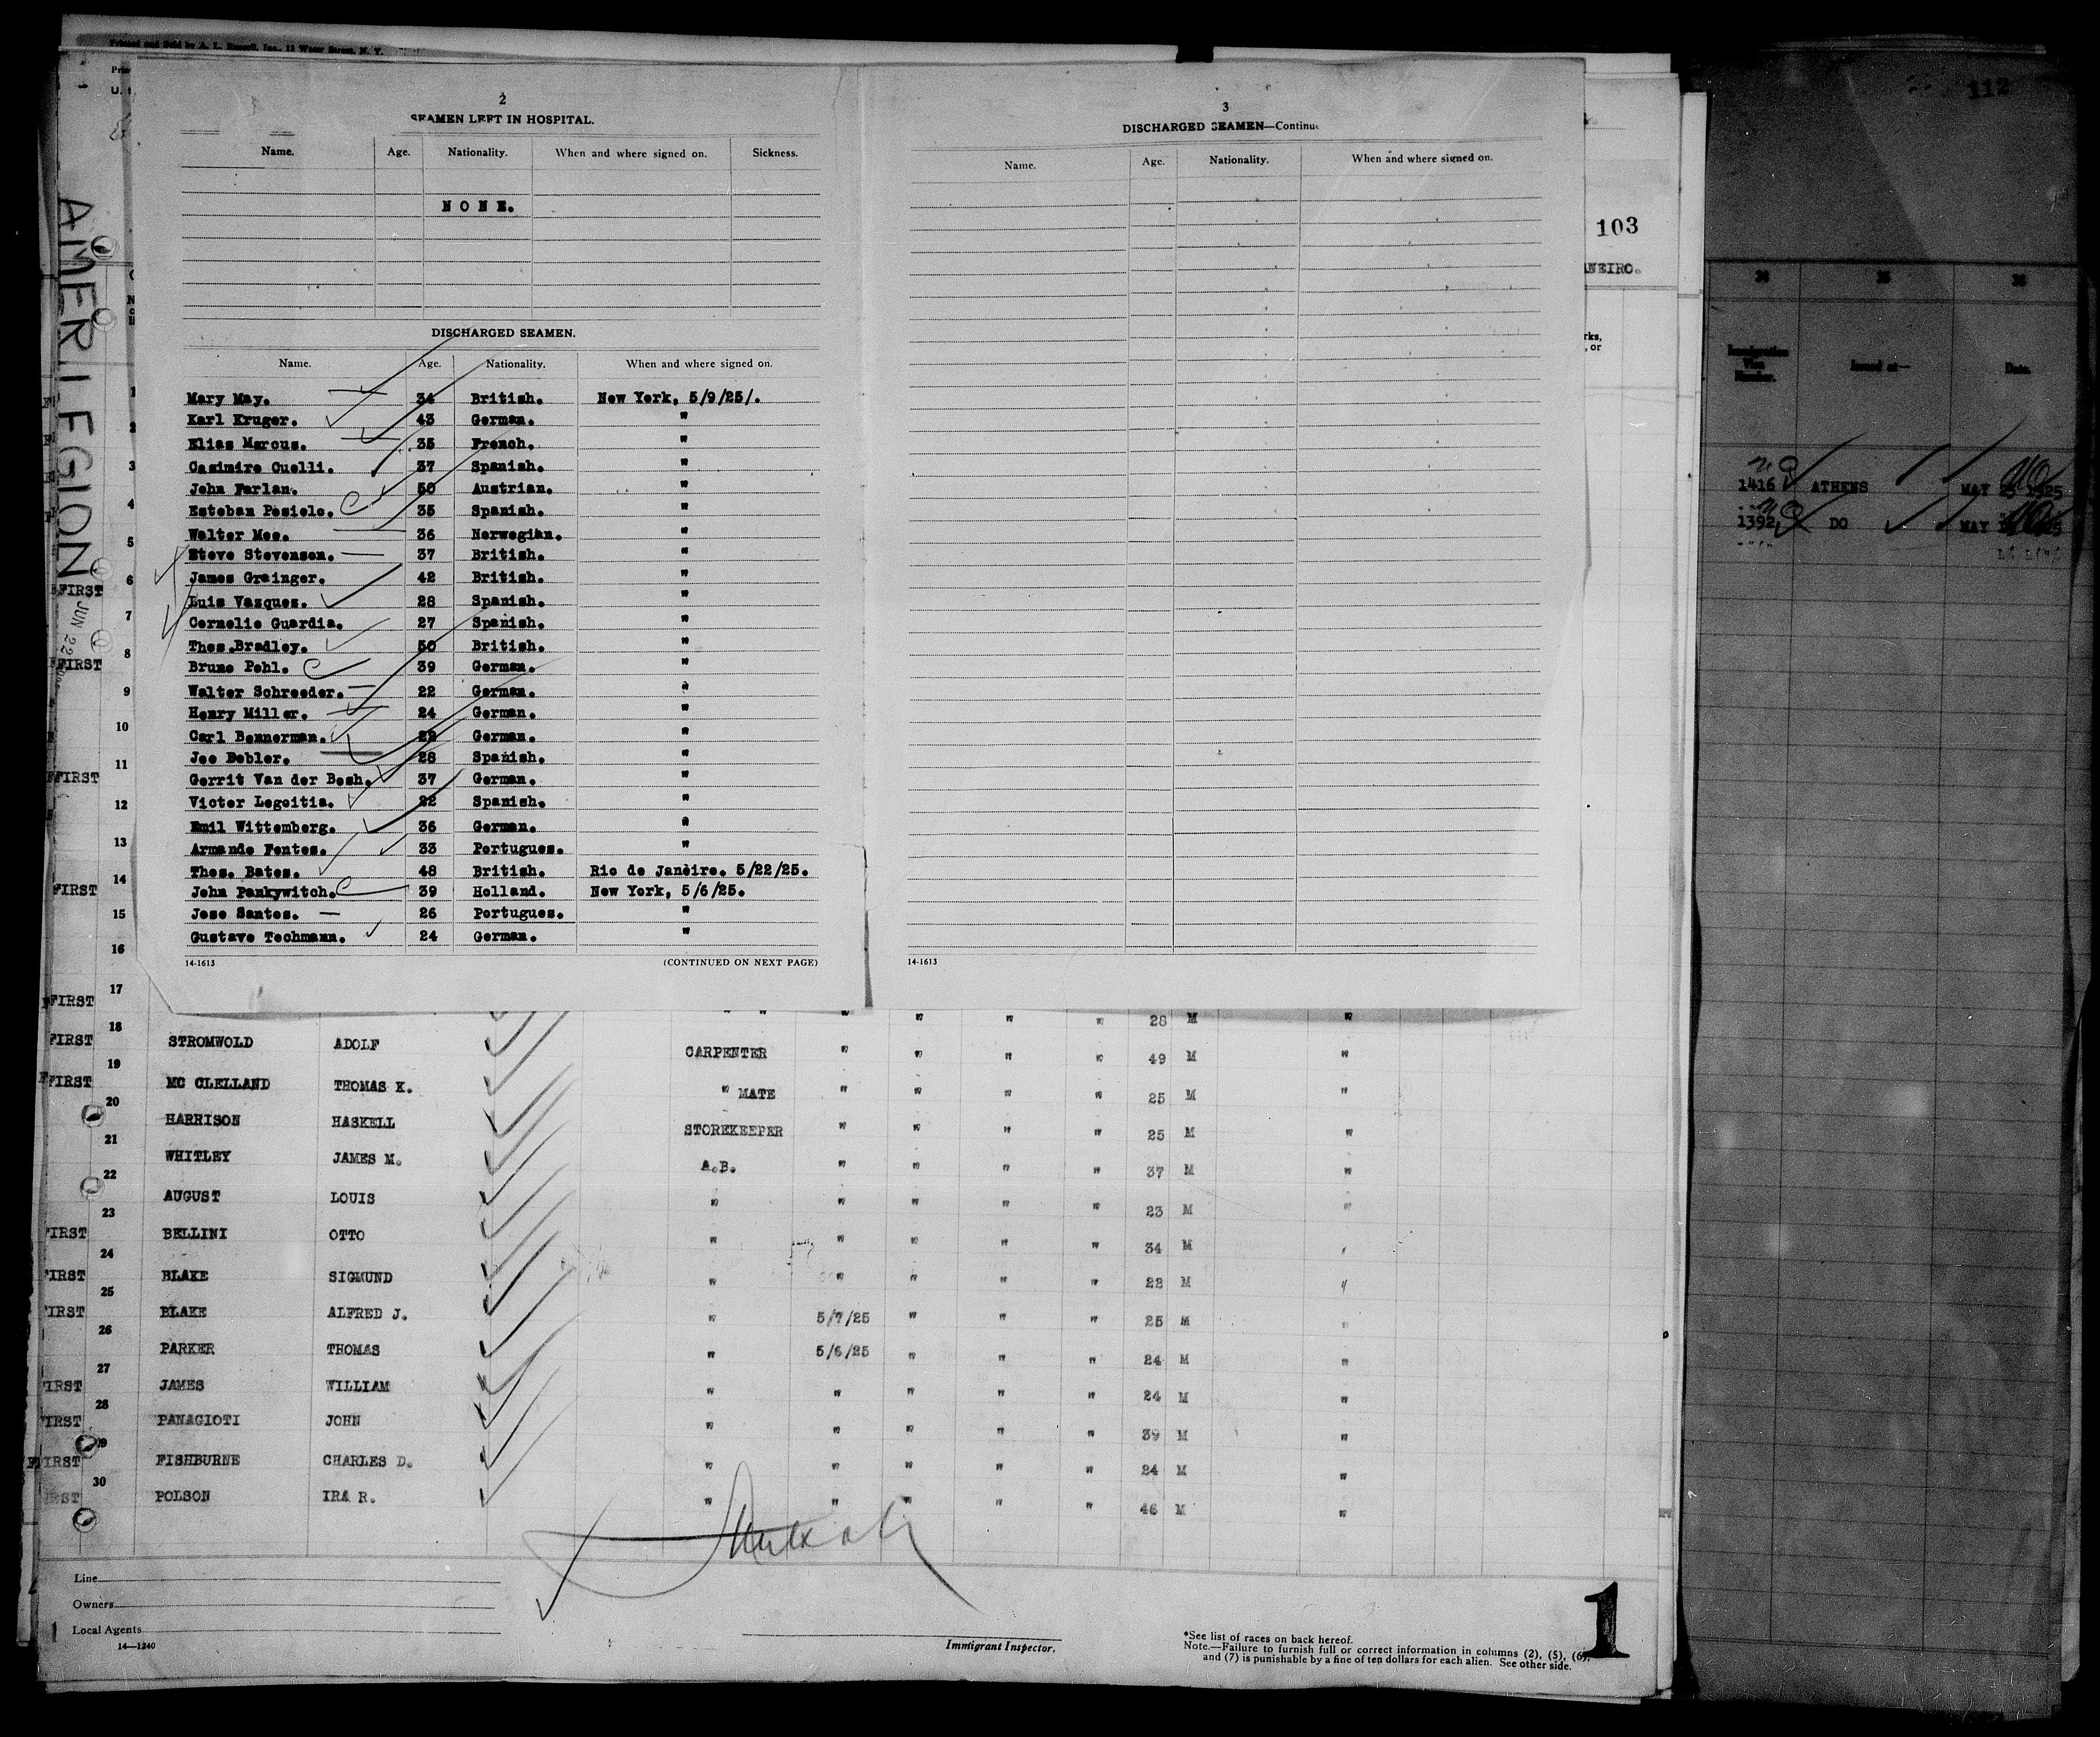 Printed and Sold by A. L. Russell, Inc., 12 Water Street, N. Y.
AMERI LEGION
JUN 22
2
SEAMEN LEFT IN HOSPITAL.
Name. Age. Nationality. When and where signed on. Sickness.
NONE.
DISCHARGED SEAMEN.
Name. Age. Nationality. When and where signed on.
Mary May. 34 British. New York, 5/9/25/.
Karl Kruger. 43 German. "
Elias Marcus. 35 French. "
Casimiro Cuelli. 37 Spanish. "
John Farlan. 50 Austrian. "
Esteban Posiolo. 35 Spanish. "
Walter Moe. 36 Norwegian. "
Steve Stevenson. 37 British. "
James Grainger. 42 British. "
Luis Vazques. 28 Spanish. "
Cornelio Guardia. 27 Spanish. "
Thos.Bradley. 50 British. "
Bruno Pohl. 39 German. "
Walter Schroeder. 22 German. "
Henry Miller. 24 German. "
Carl Bonnerman. 22 German. "
Joe Bobler. 28 Spanish. "
Gerrit Van der Bosh. 37 German. "
Victor Legoitia. 22 Spanish. "
Emil Wittemberg. 36 German. "
Armando Fontes. 33 Portugues. "
Thos. Bates. 48 British. Rio de Janeiro. 5/22/25.
John Pankywitch. 39 Holland. New York, 5/6/25.
Jose Santos. 26 Portugues. "
Gustave Techmann. 24 German. "
14-1613 (CONTINUED ON NEXT PAGE)
3
DISCHARGED SEAMEN—Continu
Name. Age. Nationality. When and where signed on.
14-1613
103
NEIRO.
rks,
, or
112
34 35 36
Immigration Visa Number. Issued at— Date.
1416 ATHENS MAY 25 1925
1392 DO MAY
1
2
3
4
5
6
FIRST
7
8
FIRST
9
10
11
FIRST
12
13
14
FIRST
15
16
17
FIRST
" " " " " " 28 M "
18
FIRST STROMWOLD ADOLF CARPENTER " " " " 49 M "
19
FIRST MC CLELLAND THOMAS K. " MATE " " " " 25 M "
20
HARRISON HASKELL STOREKEEPER " " " " 25 M "
21
WHITLEY JAMES M. A.B. " " " " 37 M "
22
AUGUST LOUIS " " " " " 23 M "
23
FIRST BELLINI OTTO " " " " " 34 M "
24
FIRST BLAKE SIGMUND " " " " " 22 M "
25
FIRST BLAKE ALFRED J. " 5/7/25 " " " 25 M "
26
PARKER THOMAS " 5/6/25 " " " 24 M "
27
FIRST JAMES WILLIAM " " " " " 24 M "
28
FIRST PANAGIOTI JOHN " " " " " 39 M "
29
FIRST FISHBURNE CHARLES D. " " " " " 24 M "
30
POLSON IRA R. " " " " " 46 M "
Line
Owners
Local Agents
14—1240
Immigrant Inspector.
*See list of races on back hereof.
Note.—Failure to furnish full or correct information in columns (2), (5), (6),
and (7) is punishable by a fine of ten dollars for each alien. See other side.
1